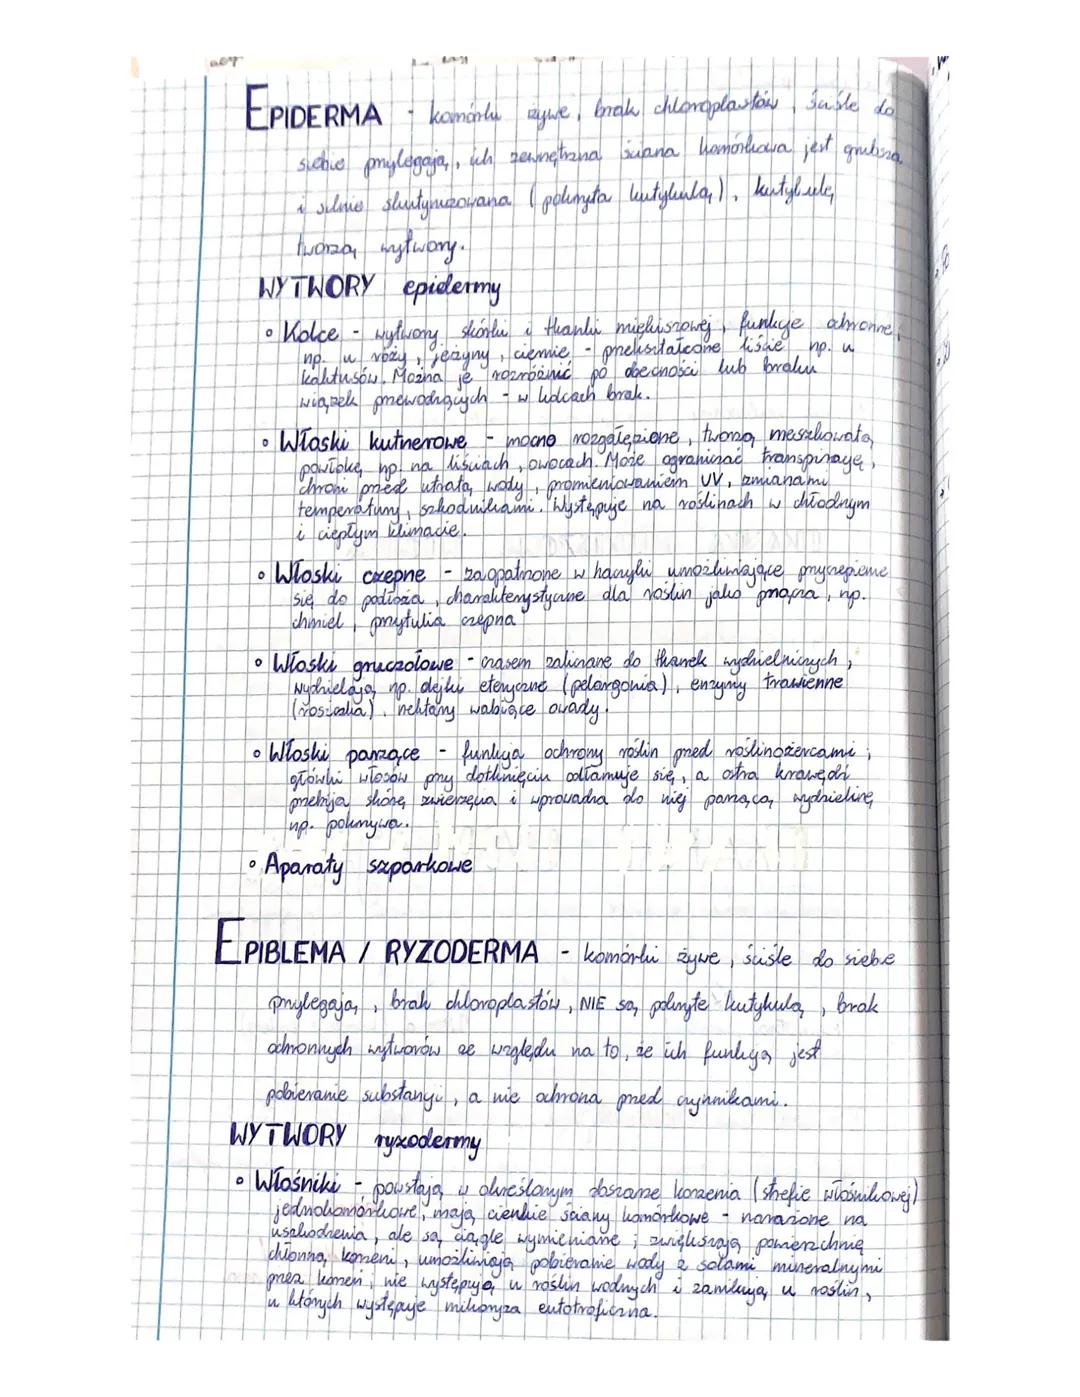 EPIDERMA - komórki żywe, brak chloroplastów, ściśle do
siebie przylegają, ich zewnętrzna ściana komórkowa jest grubsza
i silnie skutynizowana (pokryta kutykulą), kutykulę,
tworzą wytwory.
WYTWORY epidermy
• Kolce - wytwory skórki i tkanki miękiszowej, funkcje ochronne,
np. u róży, jeżyny, ciernie - przekształcone liście np. u
kaktusów. Można je rozróżnić po obecności lub braku
wiązek przewodzących - w kolcach brak.
• Włoski kutnerowe - mocno rozgałęzione, tworzą meszkowatą
powłokę, np. na liściach, owocach. Może ograniczać transpirację,
chroni przed utratą wody, promieniowaniem UV, zmianami
temperatury, szkodnikami. Występuje na roślinach w chłodnym
i ciepłym klimacie.
• Włoski czepne - zaopatrzone w haczyki umożliwiające przyczepienie
się do podłoża, charakterystyczne dla roślin jako pnącza, np.
chmiel, przytulia czepna
• Włoski gruczołowe - czasem zaliczane do tkanek wydzielniczych,
wydzielają np. olejki eteryczne (pelargonia), enzymy trawienne
(rosiczka), nektary wabiące owady.
• Włoski parzące - funkcja ochrony roślin przed roślinożercami;
główki włosów przy dotknięciu odłamuje się, a ostra krawędź
przebija skórę zwierzęcia i wprowadza do niej parzącą wydzielinę
np. pokrzywa.
• Aparaty szparkowe
EPIBLEMA / RYZODERMA - komórki żywe, ściśle do siebie
przylegają, brak chloroplastów, NIE są pokryte kutykulą, brak
ochronnych wytworów ze względu na to, że ich funkcją jest
pobieranie substancji, a nie ochrona przed czynnikami.
WYTWORY ryzodermy
• Włośniki - powstają w określonym obszarze korzenia (strefie włośnikowej)
jednokomórkowe, mają cienkie ściany komórkowe - narażone na
uszkodzenia, ale są ciągle wymieniane; zwiększają powierzchnię
chłonną korzeni, umożliwiają pobieranie wody z solami mineralnymi
przez korzeń; nie występują u roślin wodnych i zanikują u roślin,
u których występuje mikoryza eutotroficzna.